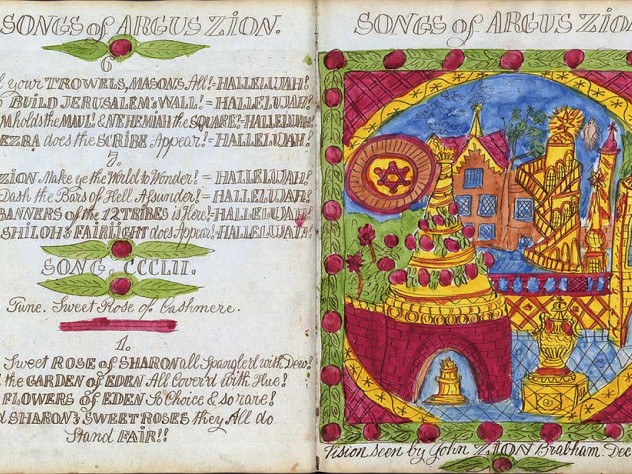 SONGS of ARGUS ZION.
6
your TROWELS, MASONS, All! = HALLELUJAH!
BUILD JERUSALEM'S WALL! = HALLELUJAH!
holds the MAUL! & NEHEMIAH the SQUARE! = HALLELUJAH!
EZRA does the SCRIBE Appear! = HALLELUJAH!
7.
ZION Make ye the World to Wonder! = HALLELUJAH!
Dash the Bars of Hell Asunder! = HALLELUJAH!
BANNERS of the 12 TRIBES is Here! = HALLELUJAH!
SHILOH'S FAIRLIGHT does Appear! = HALLELUJAH!
SONG. CCCLII.
Tune. Sweet Rose of Cashmere.
1.
Sweet ROSE of SHARON all Spangler'd with Dew!
the GARDEN of EDEN All Cover'd with Hue!
FLOWERS of EDEN So Choice & so rare!
SHARON'S SWEET ROSES they All do
Stand FAIR!!
SONGS of ARGUS ZION
Vision seen by John ZION Brabham. Dec